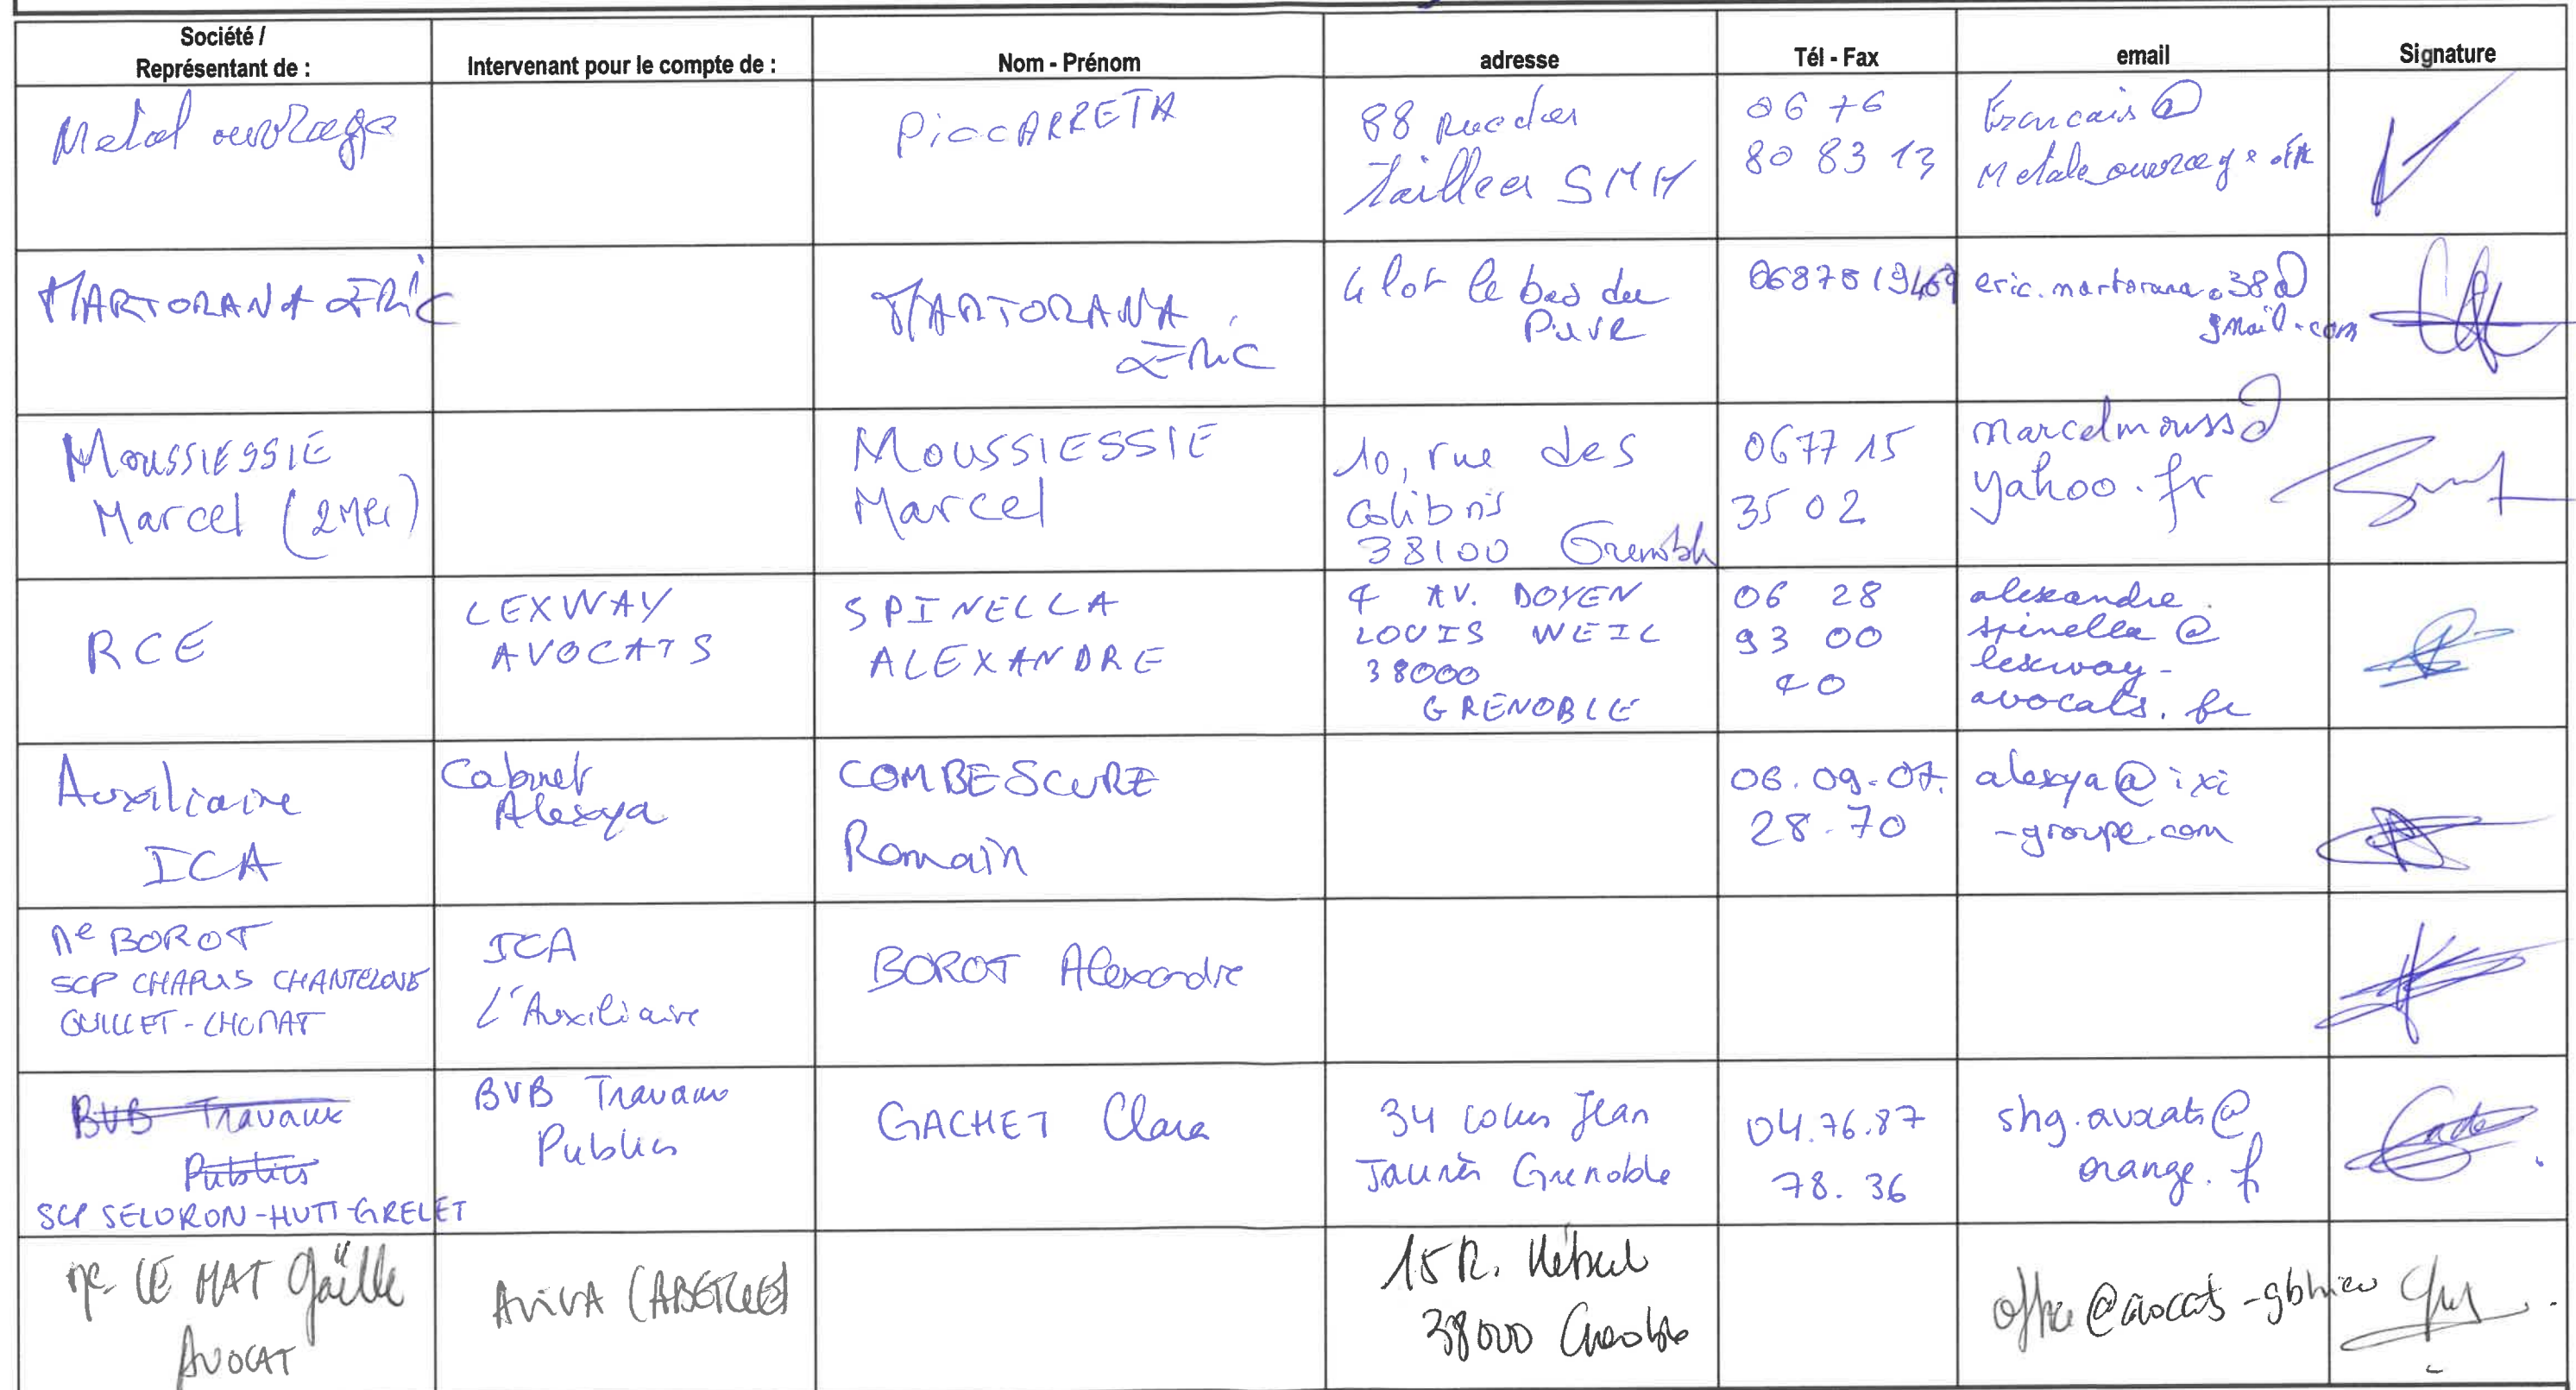 Société /
Représentant de :
Intervenant pour le compte de :
Nom - Prénom
adresse
Tél - Fax
email
Signature
Metal ouvrage
PiccARRETA
88 rue des
Tailles SMH
06 76
80 83 13
francais@
MARTORANA ERIC
MARTORANA
ERIC
4 lot le bas du
06878 19469
eric.martorana.38@
gmail.com
MOUSSIESSIE
Marcel
MOUSSIESSIE
Marcel
10, rue des
Colibris
38100 Grenoble
0677 15
35 02
marcelmouss@
yahoo.fr
RCE
LEXWAY
AVOCATS
SPINELLA
ALEXANDRE
4 AV. DOYEN
LOUIS WEIL
38000
GRENOBLE
06 28
93 00
40
alexandre.
spinella@
lexway-
avocats.fr
Auxiliaire
ICA
Cabinet
Alexya
COMBESCURE
Romain
06.09.07.
28.70
alexya@ixi
-groupe.com
Me BOROT
SCP CHAPUIS CHANTELOVE
GUILLET-LHOMAT
ICA
L'Auxiliaire
BOROT Alexandre
BVB Travaux
Publics
SCP SELORON-HUTT-GRELET
BVB Travaux
Publics
GACHET Clara
34 cours Jean
Jaurès Grenoble
04.76.87
78.36
shg.avocats@
orange.fr
Me LE MAT Gaëlle
AVOCAT
AVIVA (ABEILLE)
15 R.
38000 Grenoble
office@avocats-